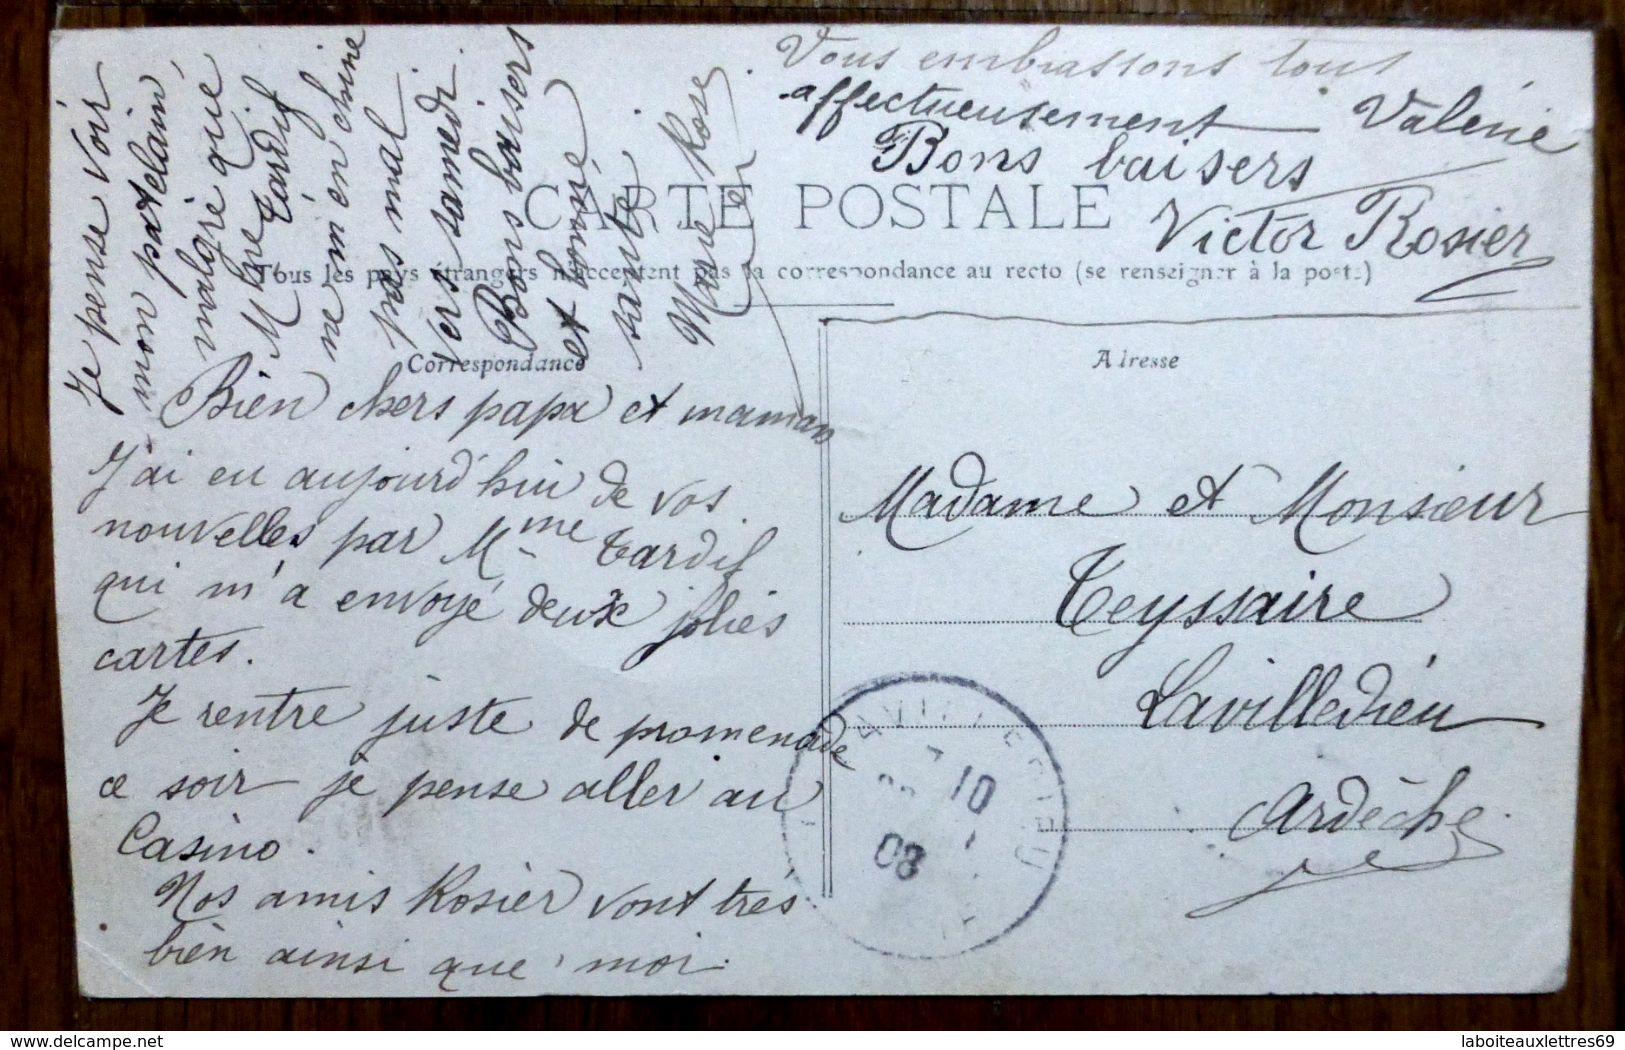 Bien chers papa et maman
J'ai eu aujourd'hui de vos
nouvelles par Mme Tardif
qui m'a envoyé deux jolies
cartes.
Je rentre juste de promenade
ce soir je pense aller au
Casino.
Nos amis Rosier vont très
bien ainsi que moi.
Je pense voir
mon patelain
malgré que
Mme Tardif
ne m'en chine
pas mal
vers samedi.
Bons baisers
et bonne
santé.
Marie Rose
Vous embrassons tous
affectueusement Valérie
Bons baisers
Victor Rosier
CARTE POSTALE
Tous les pays étrangers n'acceptent pas la correspondance au recto (se renseigner à la poste)
Correspondance
Adresse
Madame et Monsieur
Teyssaire
Lavilledieu
Ardèche
10
08
laboiteauxlettres69